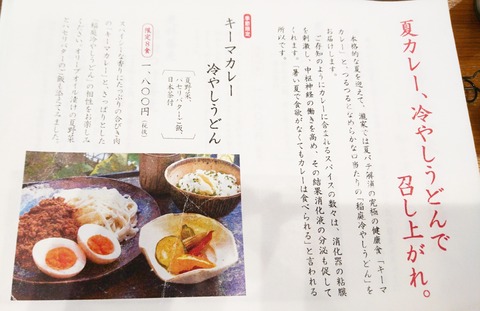 夏カレー、冷やしうどんで
召し上がれ。
本格的な夏を迎えて、瀬家では夏バテ解消の究極の健康食「キーマ
カレー」と、つるつるとなめらかな口当たりの「稲庭冷やしうどん」を
お届けします。
ご存知のようにカレーに含まれるスパイスの数々は、消化器の粘膜
を刺激し、中枢神経の働きを高め、その結果消化液の分泌も促して
くれます。「暑い夏で食欲がなくてもカレーは食べられる」と言われる
所以です。
季節限定
キーマカレー
冷やしうどん
夏野菜、
パセリバターご飯、
日本茶付
限定日食
一、八〇〇円（税抜）
スパイシーな香りにたっぷりの合びき肉
の「キーマカレー」と、さっぱりとした
「稲庭冷やしうどん」の相性をお楽しみ
ください。オリーブオイル漬けの夏野菜
とパセリバターのご飯を添えてみました。